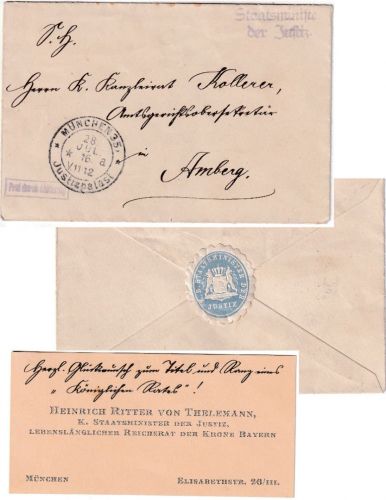 Staatsminister
der Justiz.
S. H.
Herrn K. Kanzleirat Kollerer,
Amtsgerichtsobersekretär
in
Amberg.
MÜNCHEN 35.
28
JUL.
16. a
VII 12
Justizpalast
K. B. STAATSMINISTER DER
JUSTIZ
Herzl. Glückwunsch zum Titel und Rang eines
„Königlichen Rates"!
HEINRICH RITTER VON THELEMANN,
K. STAATSMINISTER DER JUSTIZ,
LEBENSLÄNGLICHER REICHSRAT DER KRONE BAYERN
MÜNCHEN
ELISABETHSTR. 26/III.